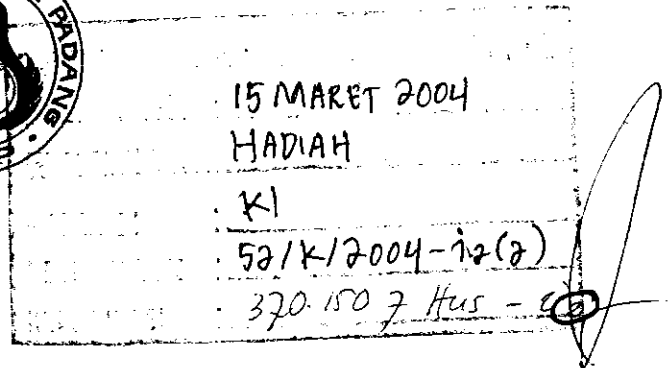 PADANG
15 MARET 2004
HADIAH
KI
52/K/2004-i2(2)
370.150 7 Hus -